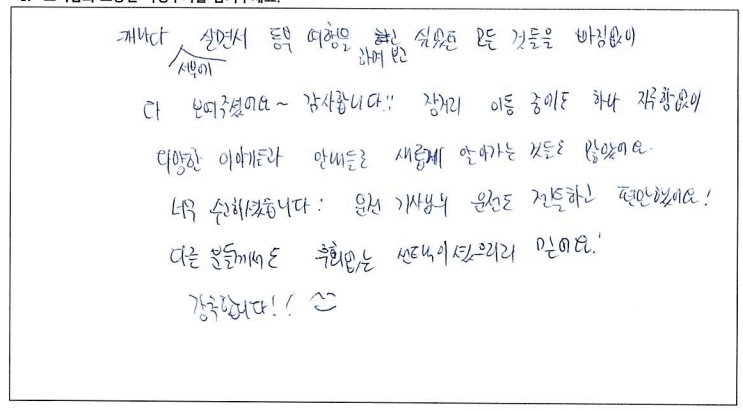 캐나다 서부에 살면서 동부 여행을 하며 보고 싶었던 모든 것들을 빠짐없이
다 보여주셨어요~ 감사합니다!! 장거리 이동 중에도 하나 지루함없이
다양한 이야기들과 안내들로 새롭게 알아가는 것들도 많았어요.
너무 수고하셨습니다! 운전 기사님의 운전도 젠틀하고 편안했어요!
다른 분들께서도 후회없는 선택이셨으리라 믿어요!
강추합니다!!